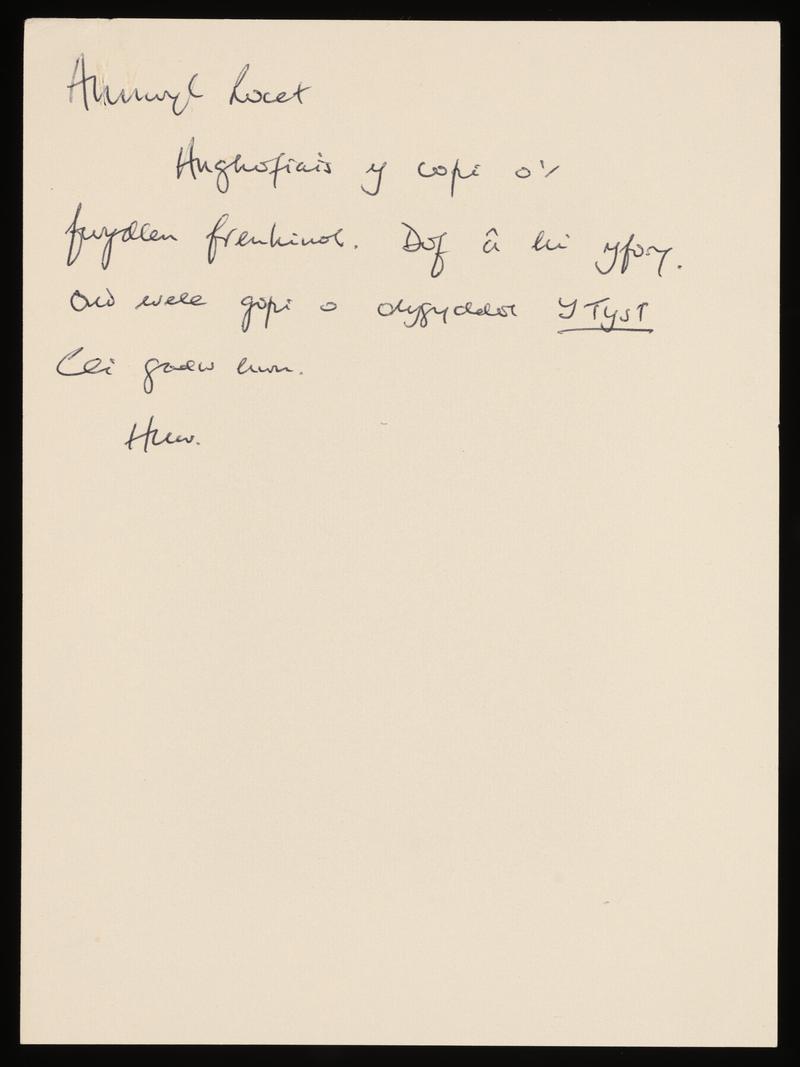 Annwyl Rocet
Anghofiais y copi o'r
fwydlen frenhinol. Dof â hi yfory.
Ond wele gopi o ddyfyddol Y Tyst
Cei gadw hwn.
Huw.